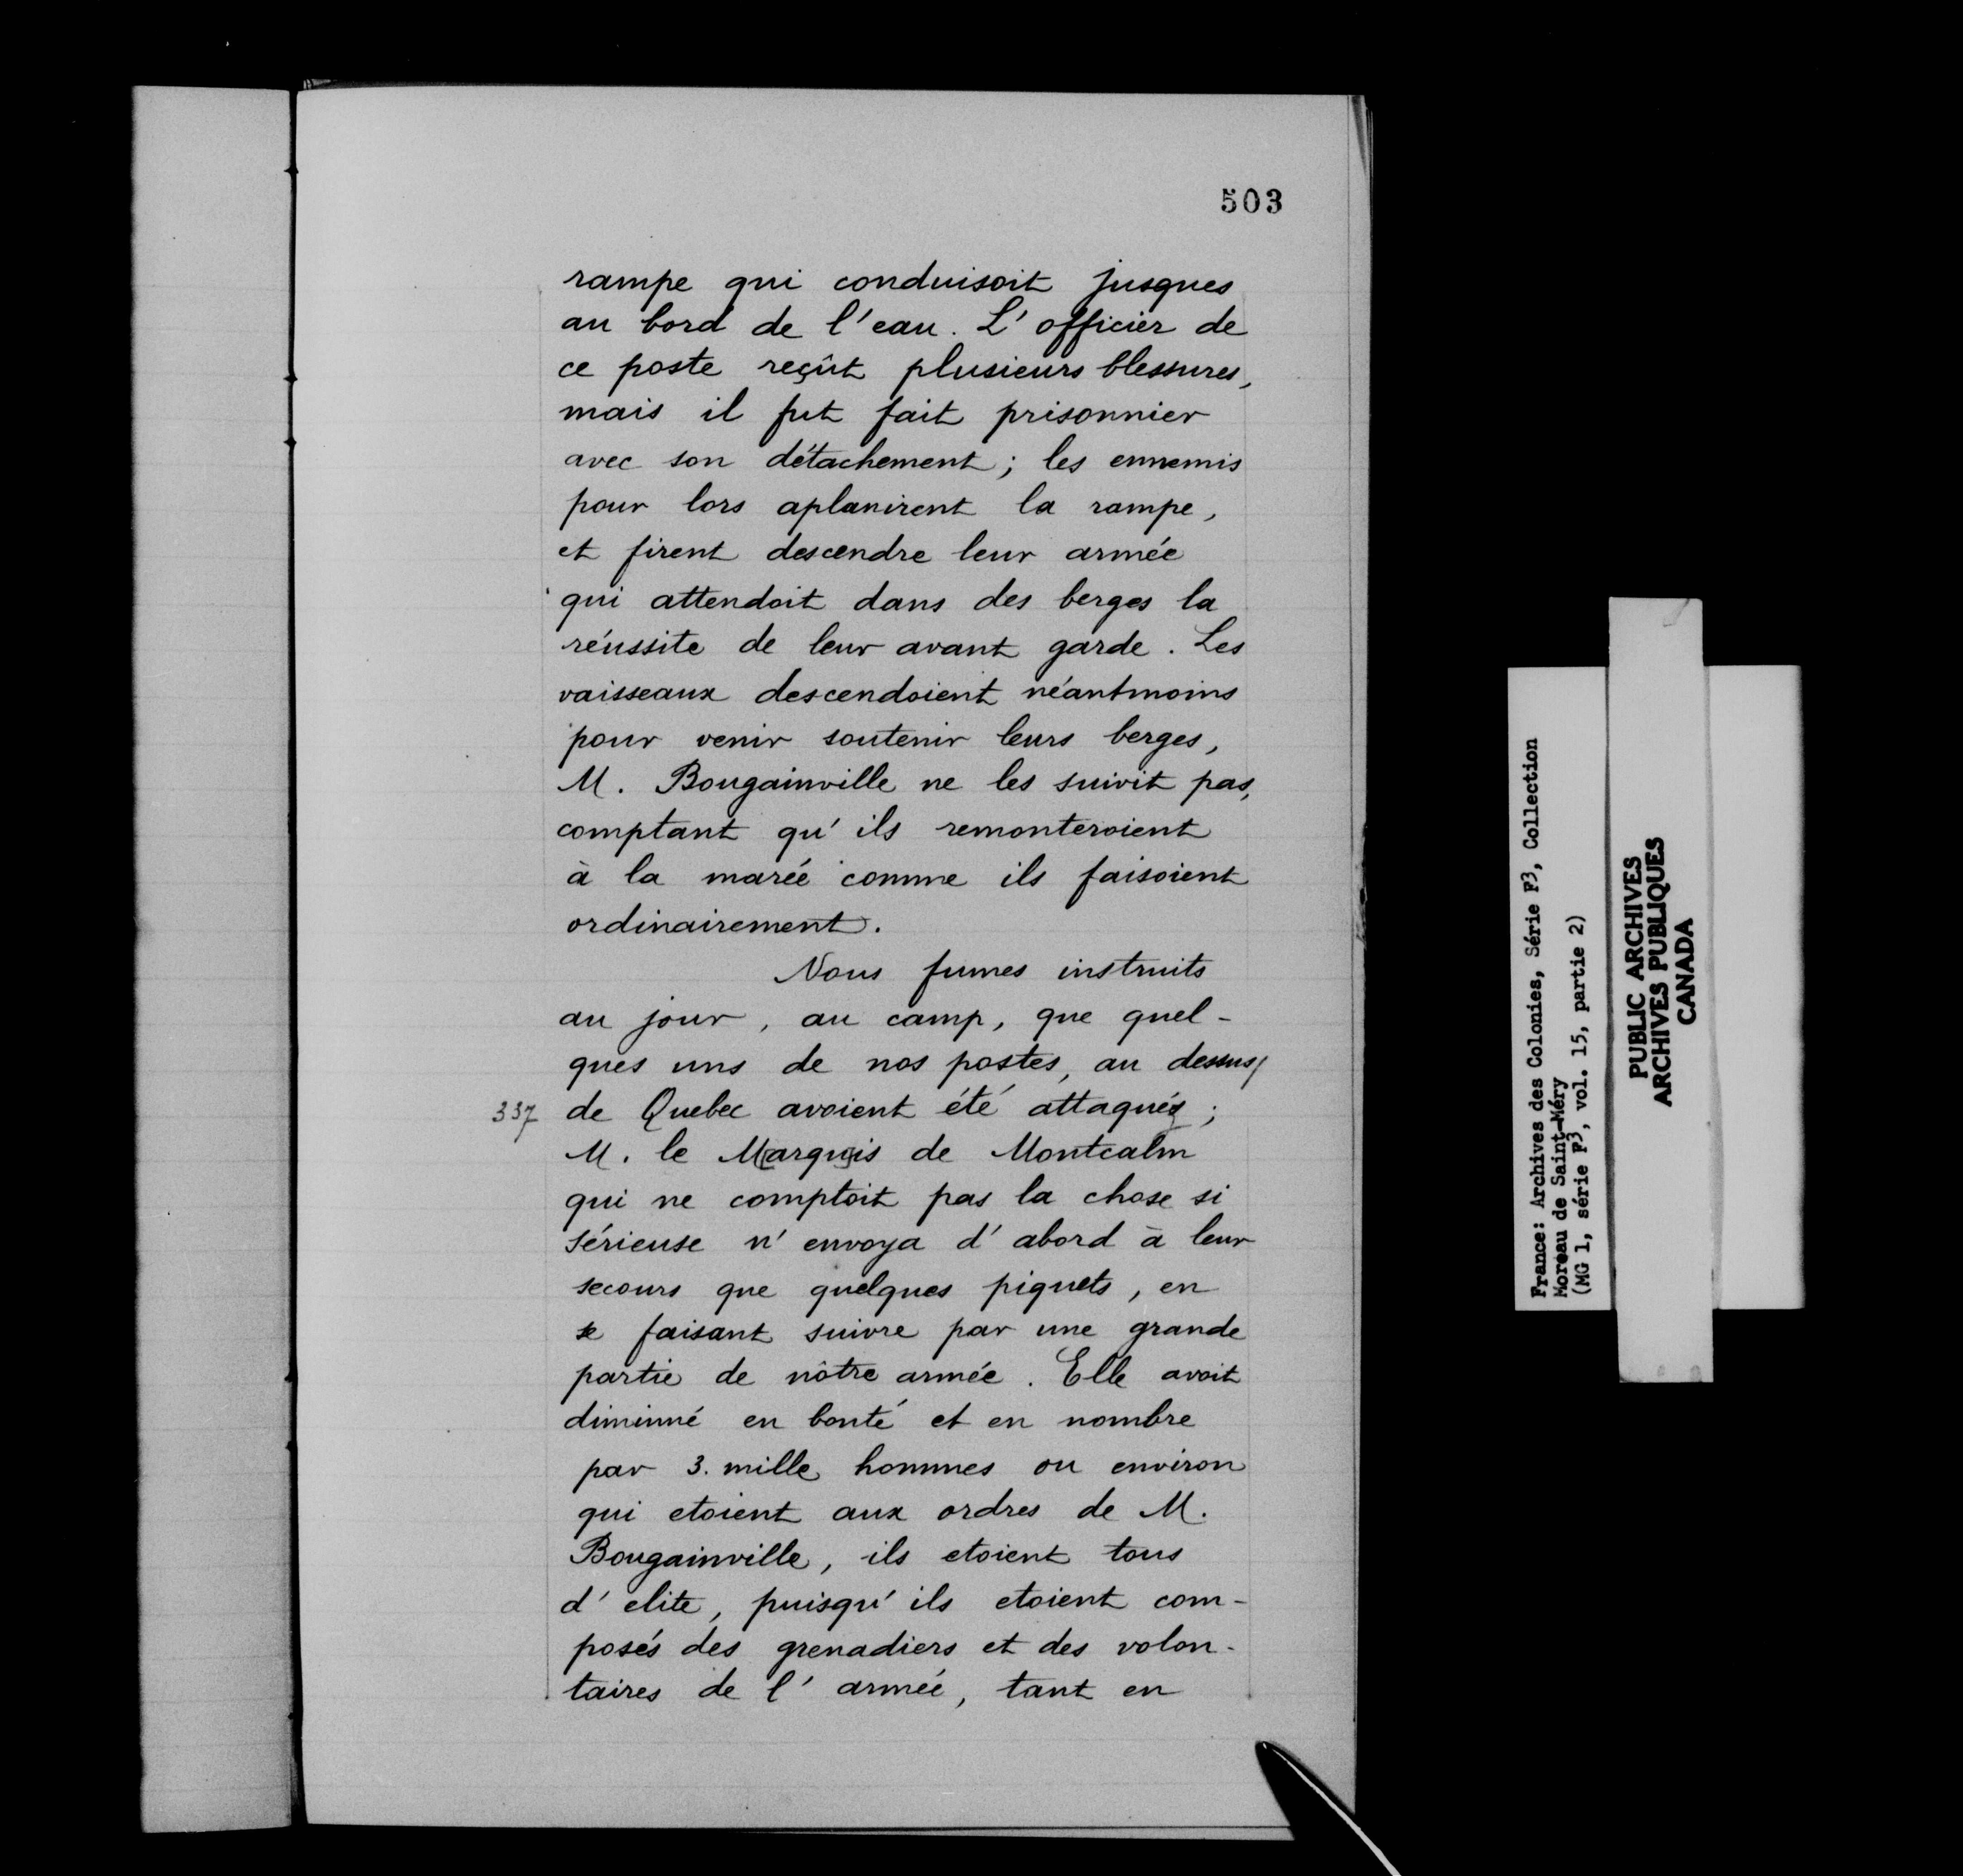 503
rampe qui conduisoit jusques
au bord de l'eau. L'officier de
ce poste reçût plusieurs blessures,
mais il fut fait prisonnier
avec son détachement; les ennemis
pour lors aplanirent la rampe,
et firent descendre leur armée
qui attendoit dans des berges la
réussite de leur avant garde. Les
vaisseaux descendoient néantmoins
pour venir soutenir leurs berges,
M. Bougainville ne les suivit pas,
comptant qu'ils remonteroient
à la marée comme ils faisoient
ordinairement.
Nous fumes instruits
au jour, au camp, que quel-
ques uns de nos postes, au dessus
337 de Quebec avoient été attaqués;
M. le Marquis de Montcalm
qui ne comptoit pas la chose si
sérieuse n'envoya d'abord à leur
secours que quelques piquets, en
se faisant suivre par une grande
partie de nôtre armée. Elle avoit
diminué en bonté et en nombre
par 3. mille hommes ou environ
qui etoient aux ordres de M.
Bougainville, ils etoient tous
d'elite, puisqu'ils etoient com-
posés des grenadiers et des volon-
taires de l'armée, tant en
France: Archives des Colonies, Série F3, Collection
Moreau de Saint-Méry
(MG 1, série F3, vol. 15, partie 2)
PUBLIC ARCHIVES
ARCHIVES PUBLIQUES
CANADA